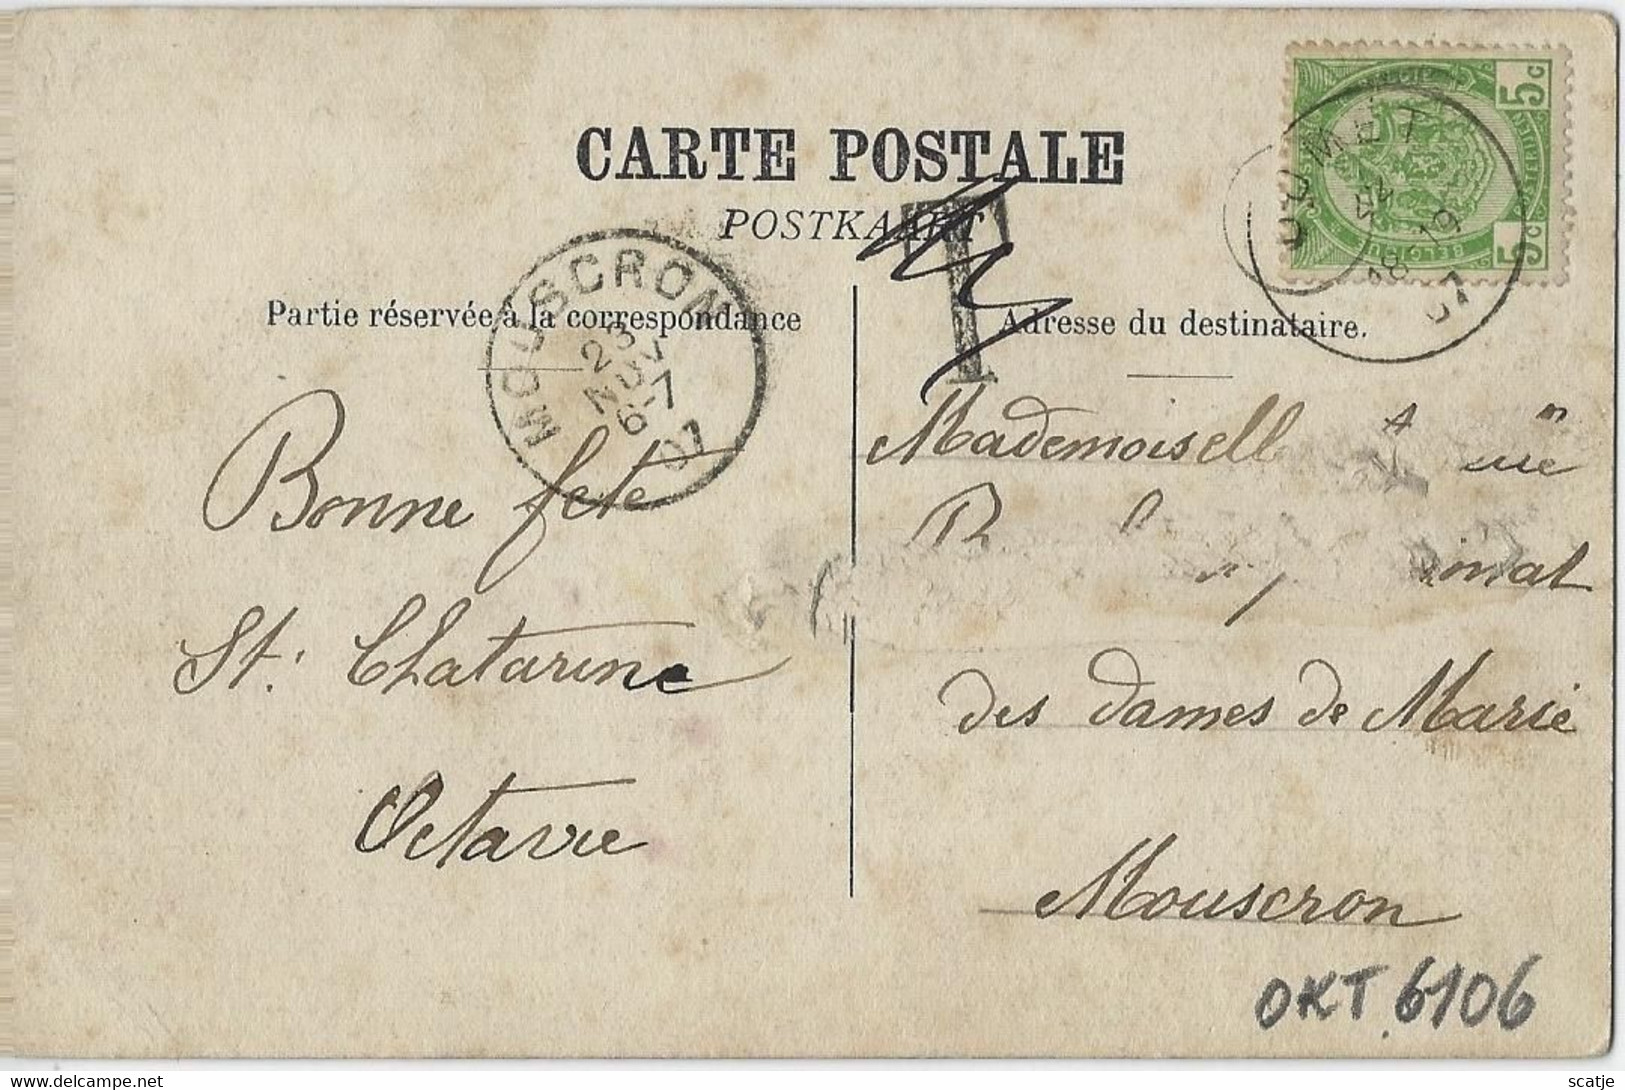 CARTE POSTALE
POSTKAART
T
MOUSCRON
23
NOV
6-7
07
5c
5c
BELGIQUE
18-19
07
Partie réservée à la correspondance
Adresse du destinataire.
Bonne fete
St. Chatarine
Octavie
Mademoisell
des dames de Marie
Mouscron
OKT.6106
scatje